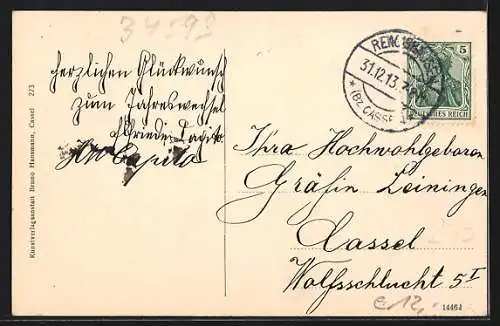 34593
herzlichen Glückwunsch
zum Jahreswechsel
Ihra Hochwohlgeboren
Gräfin Leiningen
Cassel
Wolfsschlucht 5 I
31.12.13.
* (BZ. CASSEL)
5
DEUTSCHES REICH
Kunstverlagsanstalt Bruno Hansmann, Cassel 273
14464